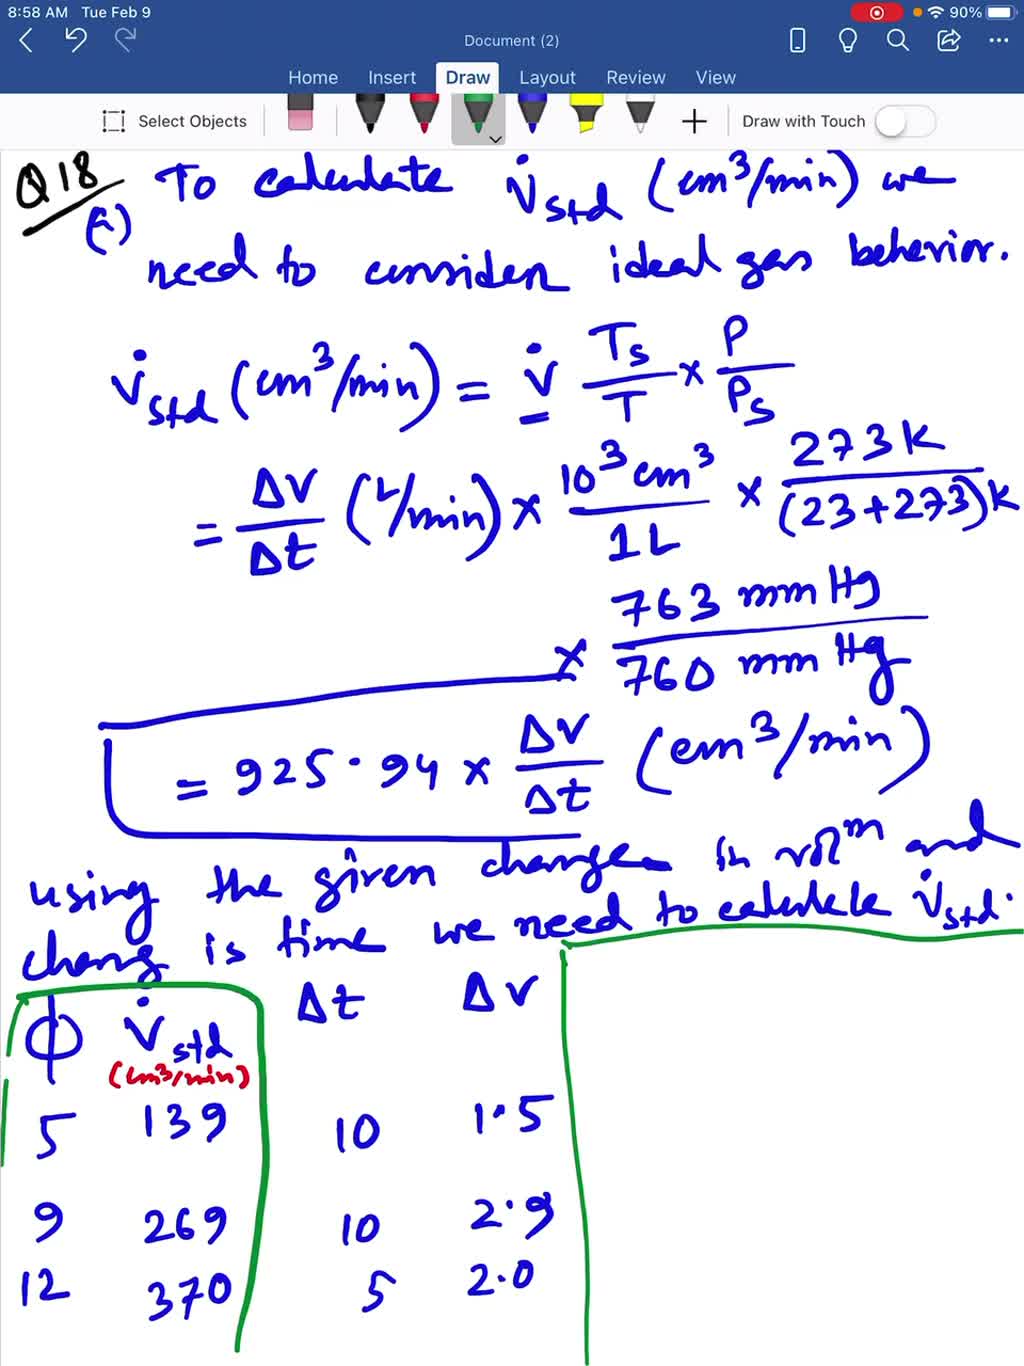 8:58 AM Tue Feb 9
90%
Document (2)
Home Insert Draw Layout Review View
Select Objects
Draw with Touch
Q18 To calculate V̇std (cm³/min) we
(a)
need to consider ideal gas behavior.
V̇std (cm³/min) = V̇ Ts/T × P/Ps
= ΔV/Δt (L/min) × 10³cm³/1L × 273K/(23+273)K
× 763 mm Hg/760 mm Hg
= 925.94 × ΔV/Δt (cm³/min)
using the given change in volᵐ and
chang is time we need to calculate V̇std.
ϕ V̇std (cm³/min) Δt ΔV
5 139 10 1.5
9 269 10 2.9
12 370 5 2.0